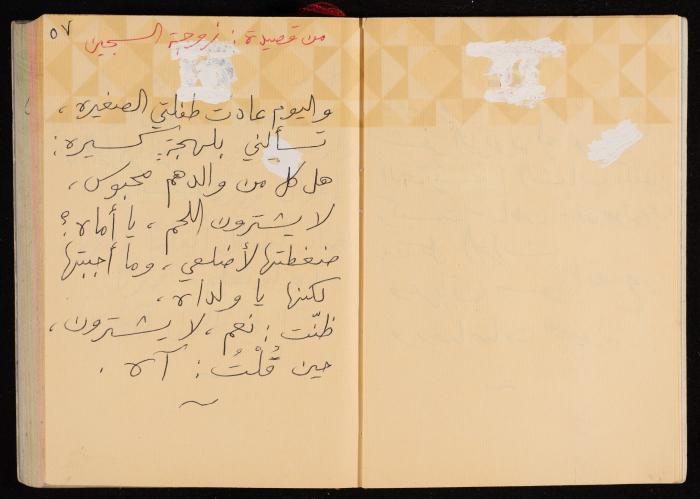 ٥٧
من قصيدة: زوجة السجين
واليوم عادت طفلتي الصغيره،
تسألني بلهجةٍ كسيره:
هل كل من والدهم محبوس،
لا يشترون اللحم، يا أماه؟
ضغطتها لأضلعي، وما أجبتها
لكنها يا ولداه،
ظنّت: نعم، لا يشترون،
حين قُلْتُ: آه.